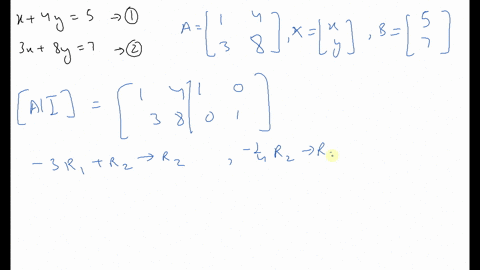 x + 4y = 5 → ①
3x + 8y = 7 → ②
A = [1 4 3 8], X = [x y], B = [5 7]
[A|I] = [1 4 | 1 0
3 8 | 0 1]
-3R₁ + R₂ → R₂ , -1/4 R₂ → R